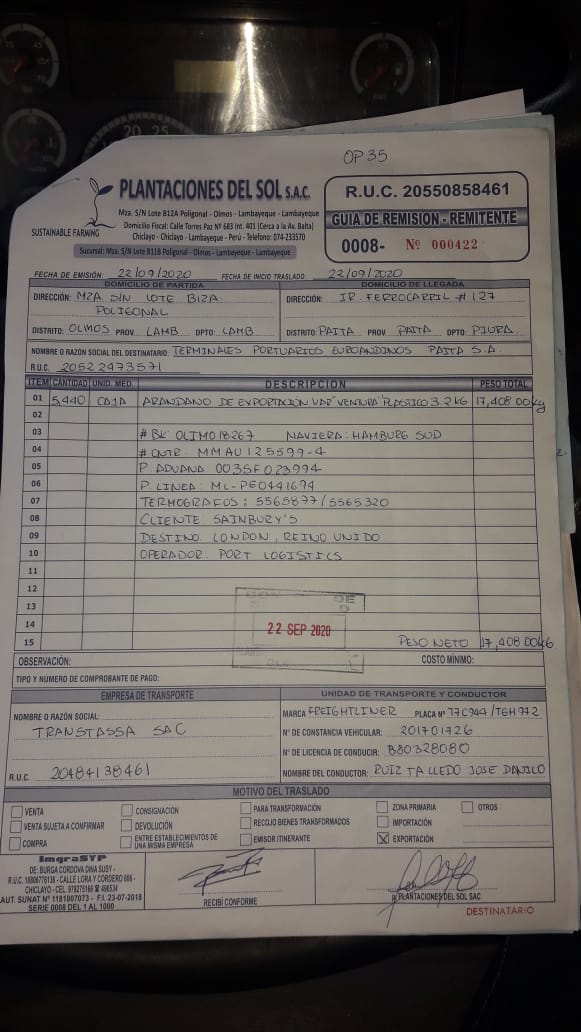 OP 35
PLANTACIONES DEL SOL S.A.C.
SUSTAINABLE FARMING
Mza. S/N Lote B12A Poligonal - Olmos - Lambayeque - Lambayeque
Domicilio Fiscal: Calle Torres Paz Nº 683 int. 401 (Cerca a la Av. Balta)
Chiclayo - Chiclayo - Lambayeque - Perú - Telefono: 074-233570
Sucursal: Mza. S/N Lote B11B Poligonal - Olmos - Lambayeque - Lambayeque
R.U.C. 20550858461
GUIA DE REMISION - REMITENTE
0008- Nº 000422
FECHA DE EMISIÓN: 22/09/2020 FECHA DE INICIO TRASLADO: 22/09/2020
DOMICILIO DE PARTIDA DOMICILIO DE LLEGADA
DIRECCIÓN: MZA S/N LOTE B12A DIRECCIÓN: JR. FERROCARRIL # 127
POLIGONAL
DISTRITO: OLMOS PROV. LAMB DPTO: LAMB DISTRITO: PAITA PROV. PAITA DPTO: PIURA
NOMBRE O RAZÓN SOCIAL DEL DESTINATARIO: TERMINALES PORTUARIOS EUROANDINOS PAITA S.A
R.U.C. 20522473571
ITEM CANTIDAD UNID. MED. DESCRIPCION PESO TOTAL
01 5,440 CAJA ARANDANO DE EXPORTACIÓN VAR "VENTURA" PLASTICO 3.2 KG 17,408.00 kg
02
03 # BK: OLIMO18267 NAVIERA: HAMBURG SUD
04 # CNTR: MMAU 125599-4
05 P. ADUANA 0035F023994
06 P. LINEA: ML-PE0441694
07 TERMOGRAFOS: 5565877/5565320
08 CLIENTE SAINBURY'S
09 DESTINO LONDON, REINO UNIDO
10 OPERADOR: PORT LOGISTICS
11
12
13
14 22 SEP 2020
15 PESO NETO 17,408.00 kg
OBSERVACIÓN: COSTO MÍNIMO:
TIPO Y NUMERO DE COMPROBANTE DE PAGO:
EMPRESA DE TRANSPORTE UNIDAD DE TRANSPORTE Y CONDUCTOR
NOMBRE O RAZÓN SOCIAL: MARCA FREIGHTLINER PLACA Nº T7C944/T6H972
TRANSTASSA SAC Nº DE CONSTANCIA VEHICULAR: 201701726
Nº DE LICENCIA DE CONDUCIR: B80328080
R.U.C. 20484138461 NOMBRE DEL CONDUCTOR: RUIZ TALLEDO JOSE DANILO
MOTIVO DEL TRASLADO
VENTA CONSIGNACIÓN PARA TRANSFORMACIÓN ZONA PRIMARIA OTROS
VENTA SUJETA A CONFIRMAR DEVOLUCIÓN RECOJO BIENES TRANSFORMADOS IMPORTACIÓN
COMPRA ENTRE ESTABLECIMIENTOS DE UNA MISMA EMPRESA EMISOR ITINERANTE X EXPORTACIÓN
ImgraSYP
DE: BURGA CORDOVA DINA SUSY -
R.U.C. 10806776136 - CALLE LORA Y CORDERO 806 -
CHICLAYO - CEL. 978275166 ☎ 496534
AUT. SUNAT Nº 1181007073 - F.I. 23-07-2018
SERIE 0008 DEL 1 AL 1000
RECIBÍ CONFORME
p. PLANTACIONES DEL SOL SAC
DESTINATARIO